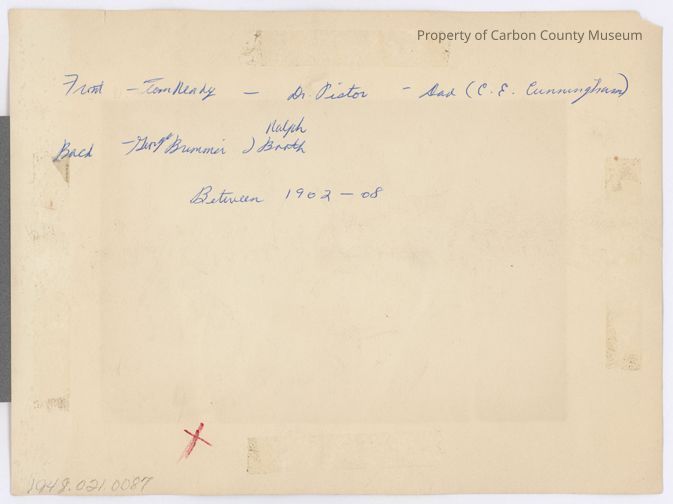 Property of Carbon County Museum
Front - Tom Ready - Dr. Pistor - Dad (C. E. Cunningham)
Ralph
Back - George Brimmer ) Booth
Between 1902 - 08
X
1948.021.0087